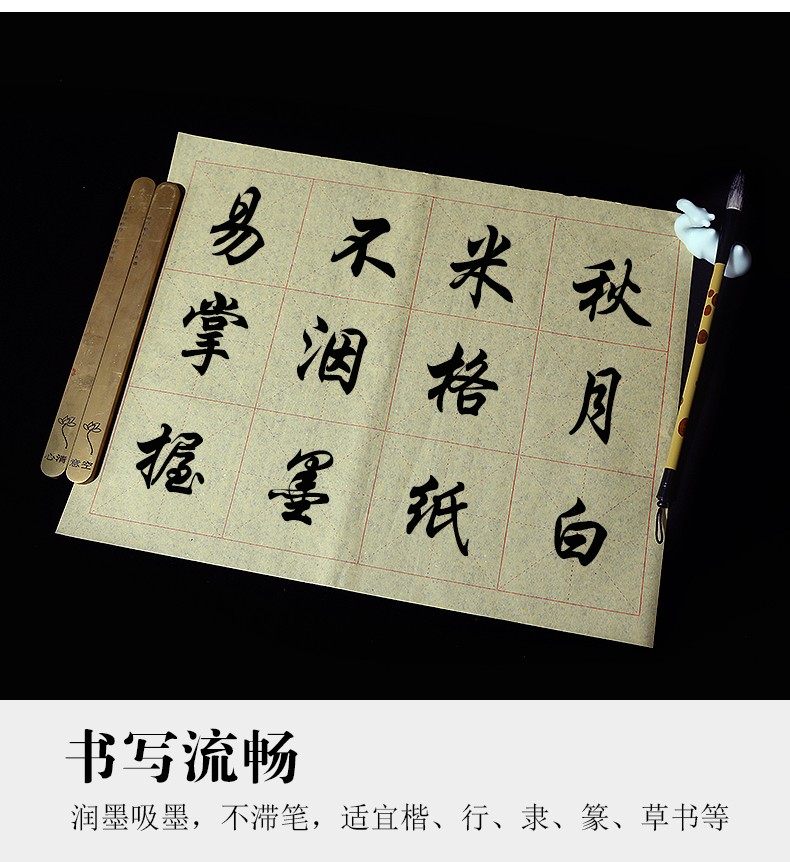 秋月白
米格纸
不洇墨
易掌握
书写流畅
润墨吸墨，不滞笔，适宜楷、行、隶、篆、草书等